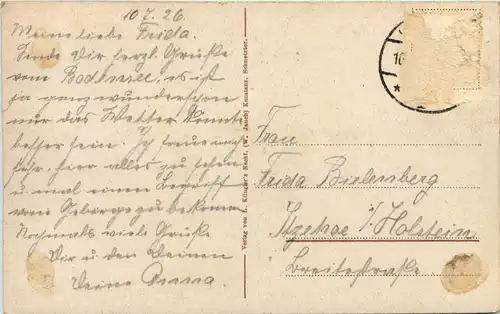 10.7.26.
Meine liebe Frida.
Sende Dir herzl. Grüße
vom Bodensee, es ist
ja ganz wunderschön
nur das Wetter könnte
besser sein. Ich freue mich
sehr, hier alles zu sehen
u. mal einen Begriff
vom Gebirge zu bekommen
Nochmals viele Grüße
Dir u. den Deinen
Deine Anna.
Verlag von L. Klinger's Nachf. (W. Jauch) Konstanz.
10
Frau
Frida Bielenberg
Itzehoe i/Holstein
Breitestraße